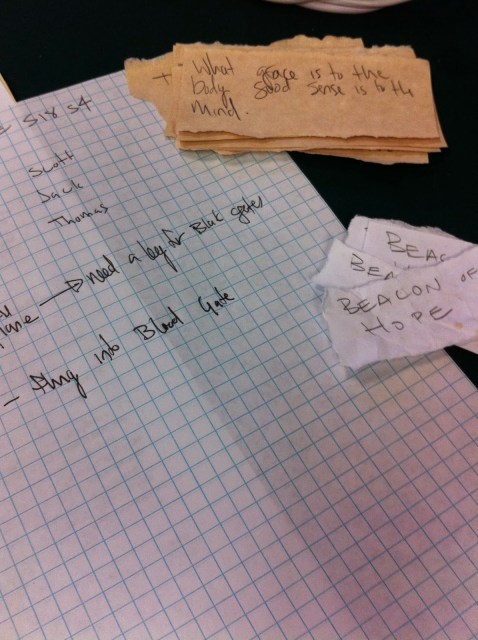 + What grace is to the
body good sense is to th
mind.
Six s4
Scott
Jack
Thomas
need a key for Black gates
lane
- Fling into Blood Gate
BEAC
BEA
BEACON OF
HOPE